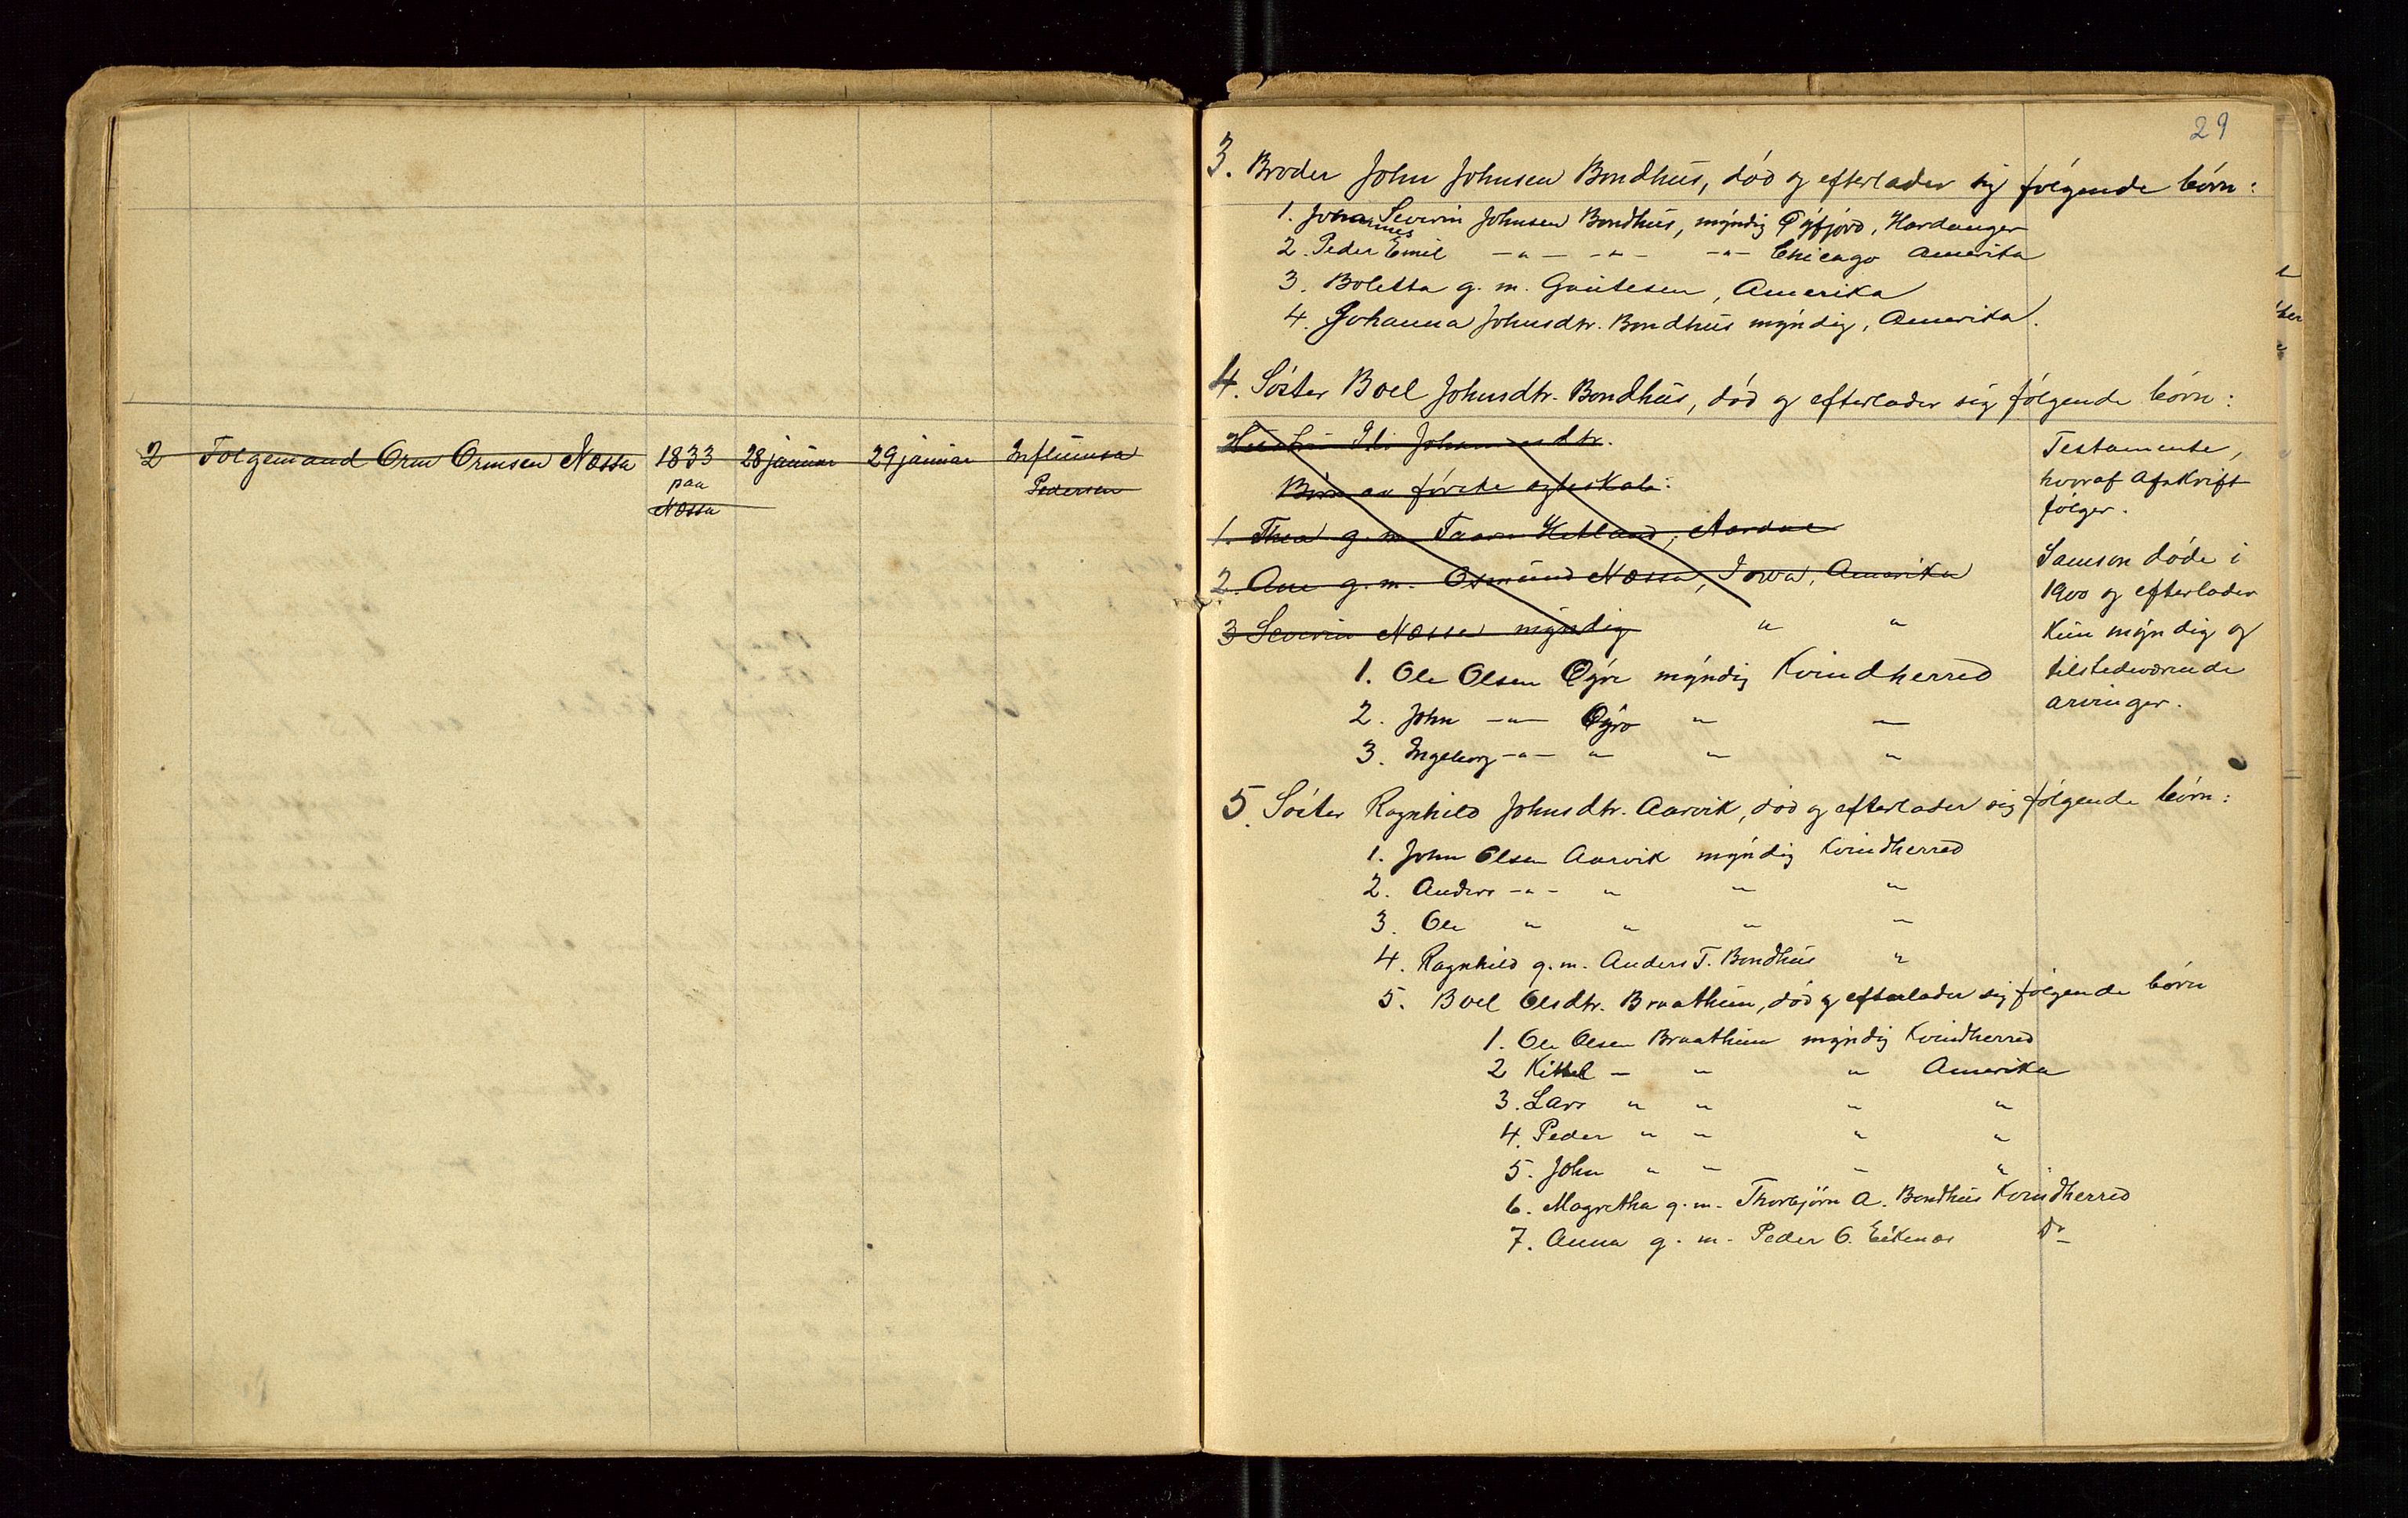 2 Folgemand Orm Ormsen Næssa 1833 28 januar 29 januar Influensa
paa Pedersen
Næssa
29
3. Broder John Johnsen Bondhus, död og efterlader sig fölgende börn:
1. Johannes Severin Johnsen Bondhus, myndig Öyfjord, Hardanger
2. Peder Emil -"- -"- -"- Chicago Amerika
3. Boletta g. m. Gautesen, Amerika
4. Johanna Johnsdtr. Bondhus myndig, Amerika.
4. Söster Boel Johnsdtr. Bondhus, död og efterlader sig fölgende börn:
Hustru Eli Johannesdtr.
Börn av förste egteskab:
1. Thea g. m. Taare Hetland, Aardal
2. Ane g. m. Osmund Næssa, Iowa, Amerika
3 Severin Næssa myndig " "
Testamente,
hvoraf Afskrift
fölger.
Samson döde i
1900 og efterlader
kun myndig og
tilstedeværende
arvinger.
1. Ole Olsen Öyre myndig Kvindherred
2. John -"- Öyre " "
3. Ingeborg -"- " " "
5. Söster Ragnhild Johnsdtr. Aarvik, död og efterlader sig fölgende börn:
1. John Olsen Aarvik myndig Kvindherred
2. Anders -"- " " "
3. Ole " " " "
4. Ragnhild g. m. Anders T. Bondhus "
5. Boel Olsdtr. Braathun, död og efterlader sig fölgende börn
1. Ole Olsen Braathun myndig Kvindherred
2 Kittel - " " Amerika
3. Lars " " " "
4. Peder " " " "
5. John " " " "
6. Magretha g. m. Thorbjörn A. Bondhus Kvindherred
7. Anna g. m. Peder O. Eikenæs do